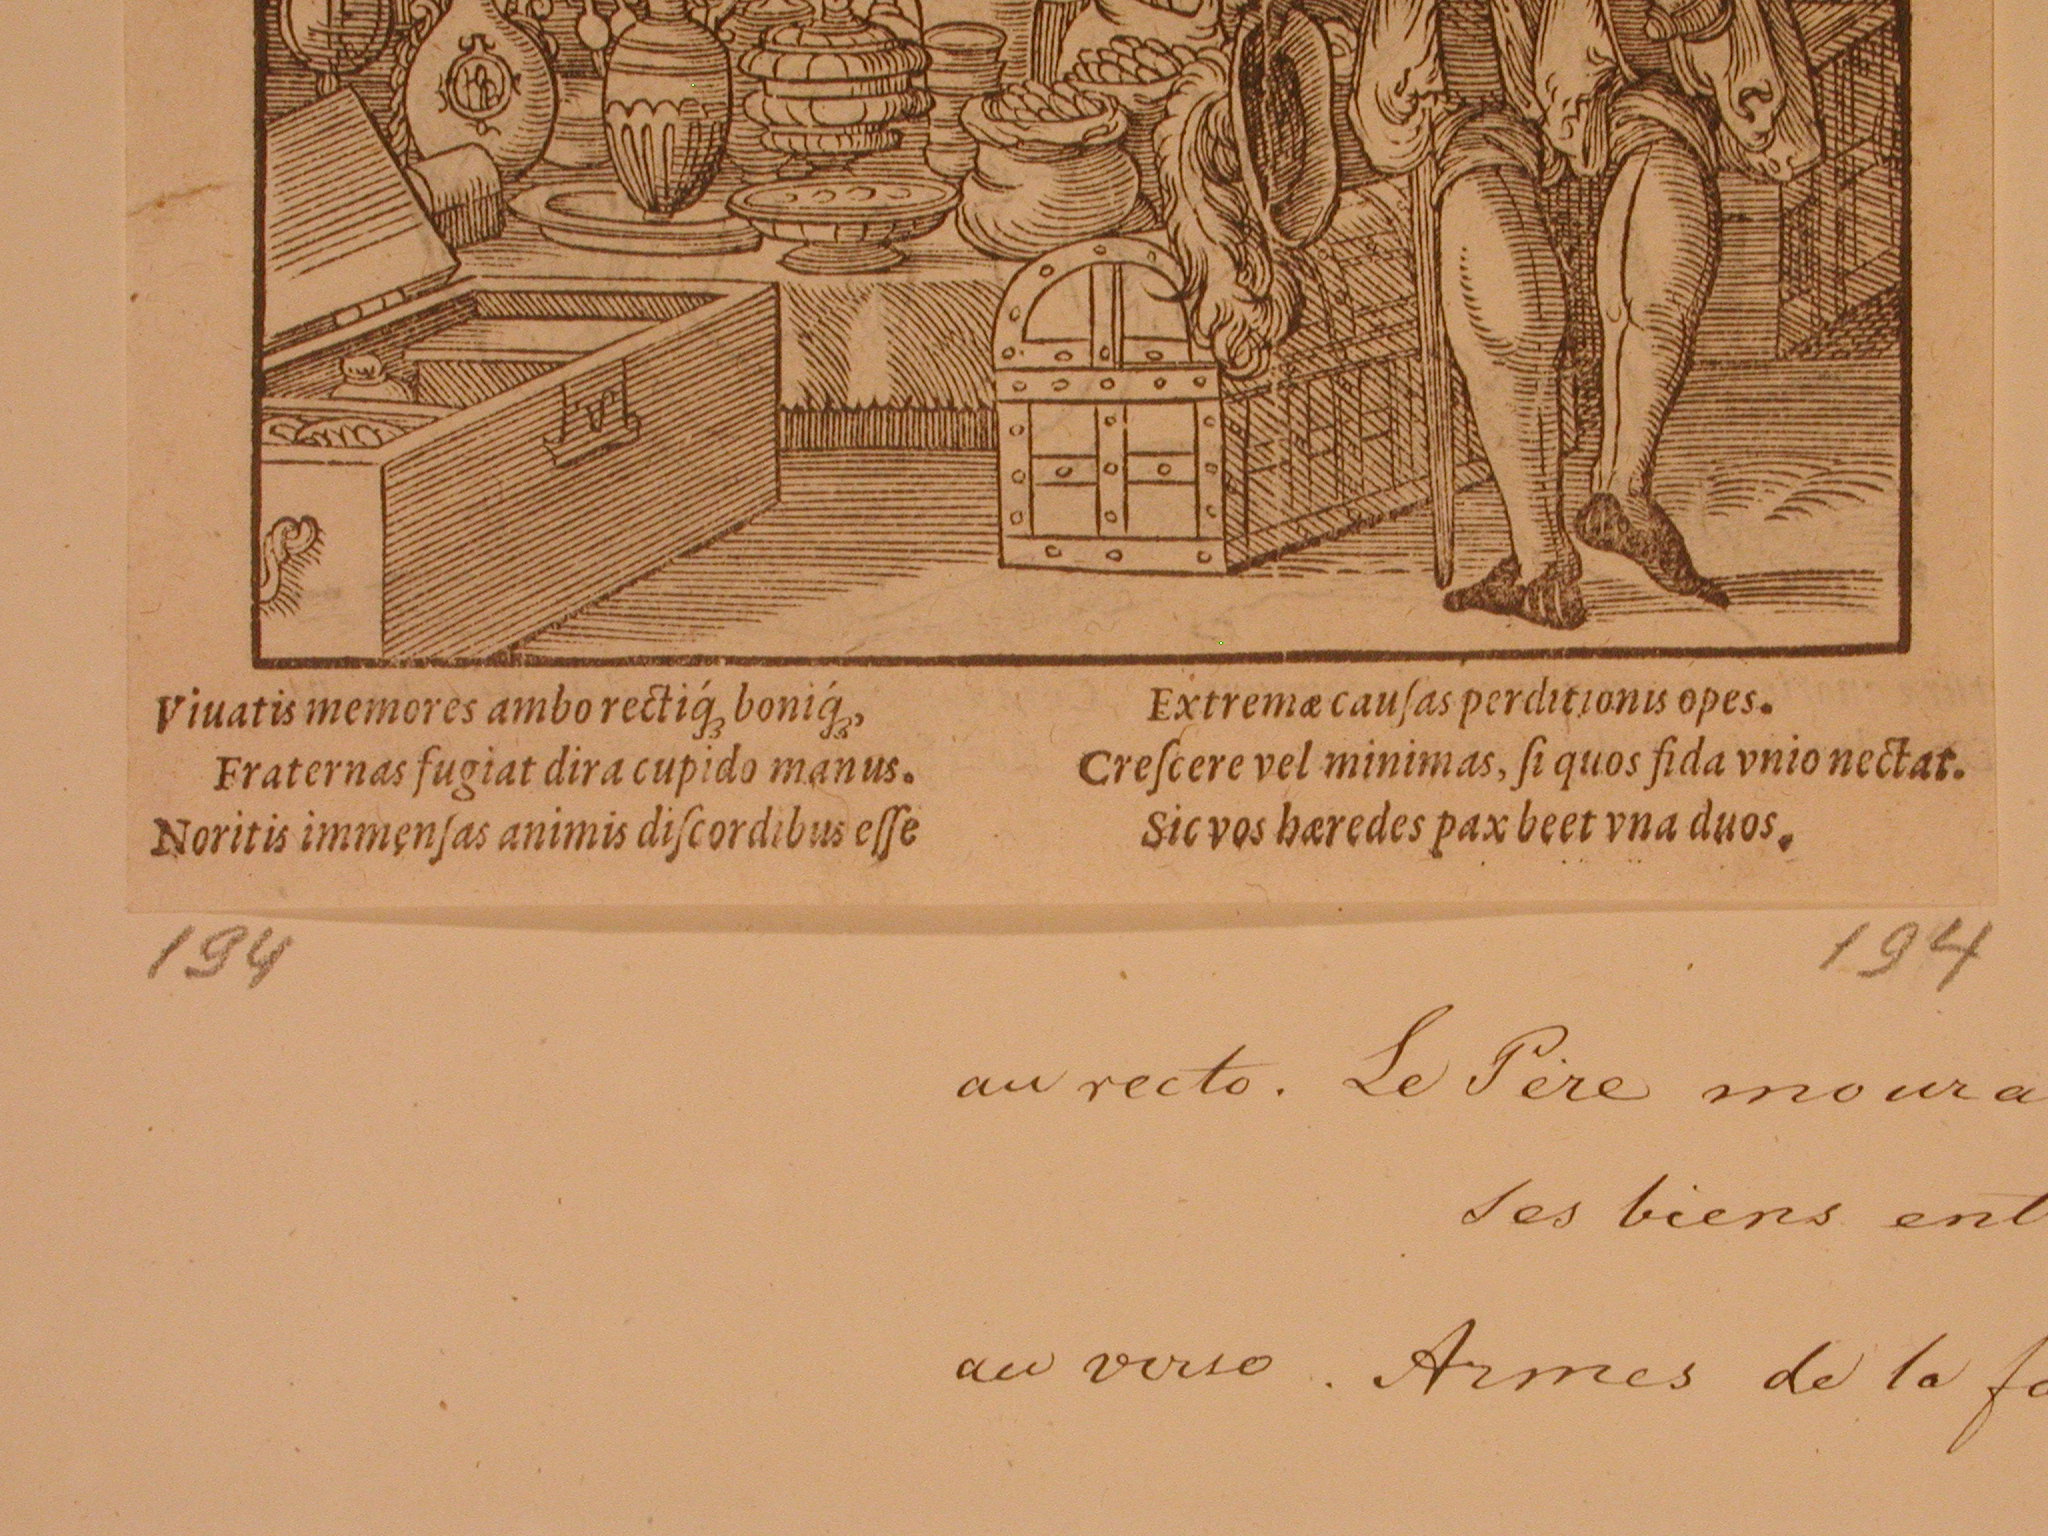 Viuatis memores ambo rectiq́ꝫ boniq́ꝫ,
Fraternas fugiat dira cupido manus.
Noritis immẹnſas animis diſcordibus eſſe
Extremæ cauſas perditionis opes.
Creſcere vel minimas, ſi quos fida vnio nectat.
Sic vos hæredes pax beet vna duos.
194 194
au recto. Le Père moura
ses biens ent
au verso. Armes de la fa